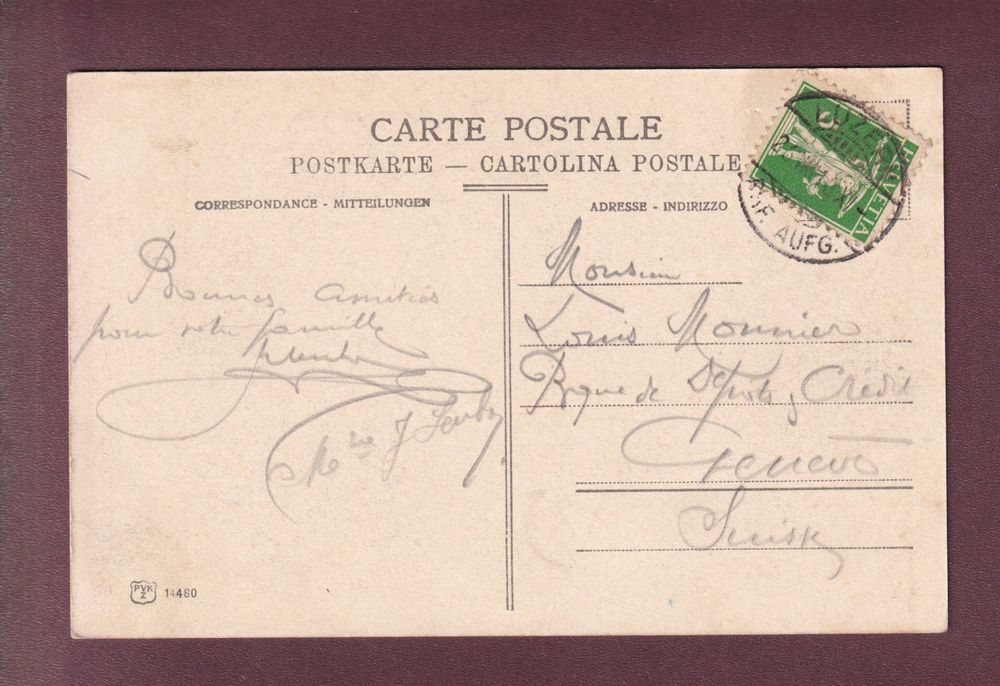 CARTE POSTALE
POSTKARTE — CARTOLINA POSTALE
CORRESPONDANCE - MITTEILUNGEN
ADRESSE - INDIRIZZO
HELVETIA
LUZERN
BRIEF. AUFG.
Bonnes amitiés
pour votre famille
Monsieur
Louis Monnier
Bque de Dépôts & Crédit
Genève
Suisse
Me J
PVK
Z
14460